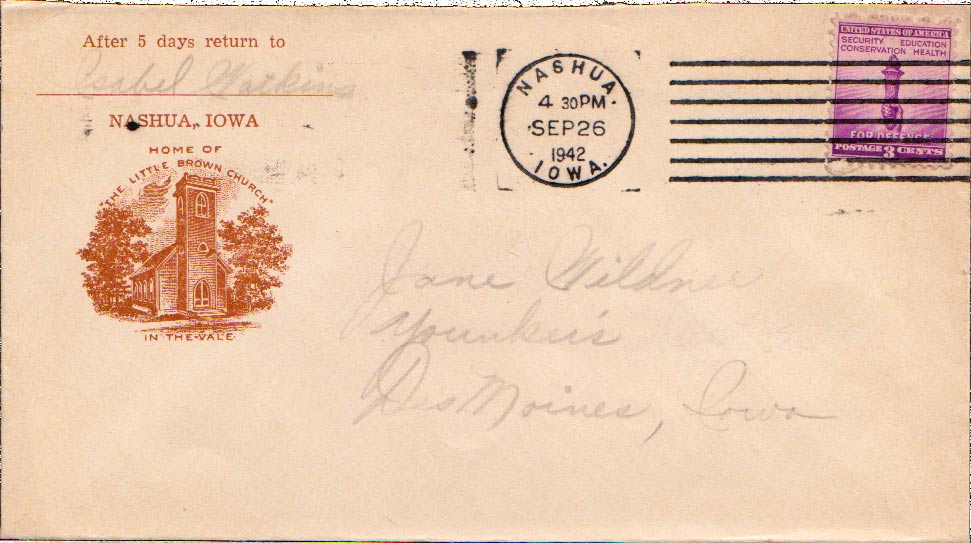 After 5 days return to
Isabel Watkins
NASHUA, IOWA
HOME OF
"THE LITTLE BROWN CHURCH"
IN THE VALE
NASHUA.
4 30PM
SEP26
1942
IOWA.
UNITED STATES OF AMERICA
SECURITY EDUCATION
CONSERVATION HEALTH
FOR DEFENSE
POSTAGE 3 CENTS
Jane Wildner
Younker's
Des Moines, Iowa